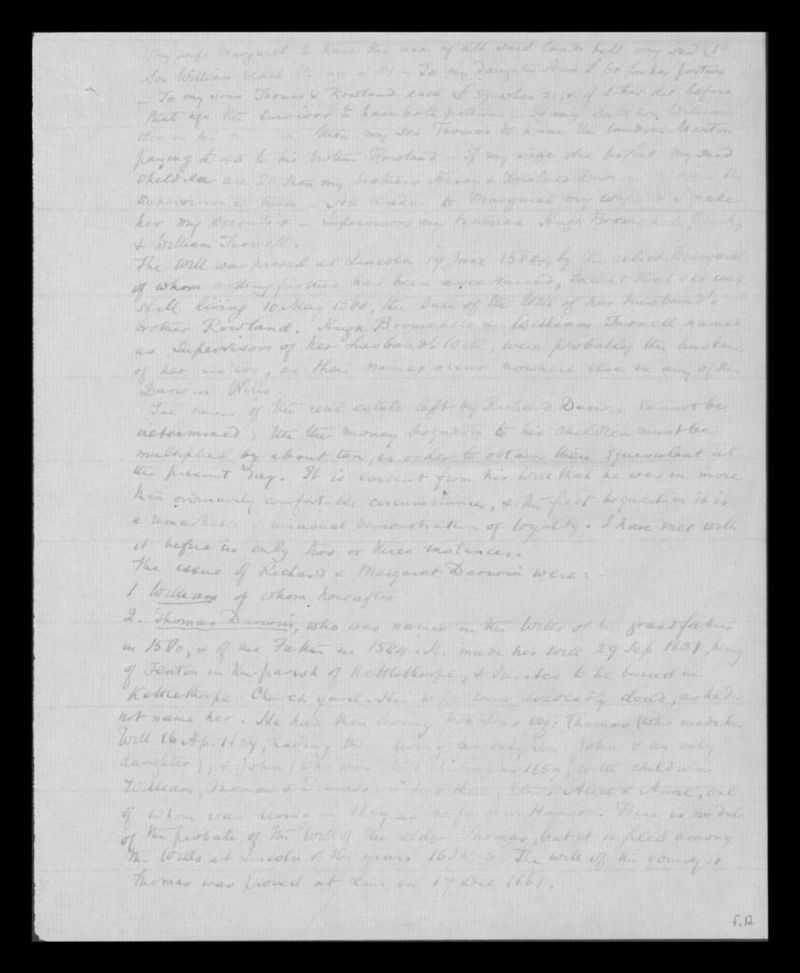 My wife Margaret to have the use of all said lands till my said
son William reach the age of 21. – To my daughter Ann £ 60 for her portion
– To my sons Thomas & Rowland each £ when 21, & if either die before
that age the survivor to have both portions – If my said son William
die then my son Thomas to have the land in Marton
paying £ 43 to his brother Rowland – If my wife die before my said
children are 21 then my brothers Henry & Rowland
supervision of them. All residue to Margaret my wife & I make
her my executrix – Supervisors my brothers Hugh
& William Turnell.
The Will was proved at Lincoln 19 June 1584, by the relict Margaret
of whom nothing further has been ascertained, except that she was
still living 10 May 1588, the date of the Will of her husband's
brother Rowland. Hugh & William Turnell named
as Supervisors of her husband's Will, were probably the husbands
of her sisters, as their names occur nowhere else in any of the
Darwin Wills.
The value of the real estate left by Richard Darwin cannot be
determined; the money bequests to his children must be
multiplied by about ten, in order to obtain their equivalent at
the present day. It is evident from his Will that he was in more
than ordinarily comfortable circumstances, & the first bequest in it is
a remarkable & unusual demonstration of loyalty. I have met with
it before in only two or three instances.
The issue of Richard & Margaret Darwin were: –
1 William of whom hereafter
2. Thomas Darwin, who was named in the Wills of his grandfather
in 1580, & of his Father in 1584. He made his Will 29 Sep 1631, being
of Fenton in the parish of Kettlethorpe, & directed to be buried in
Kettlethorpe Church yard. His wife was evidently dead, as he did
not name her. He had then living two sons viz: Thomas (who made his
Will 16 Ap. 1659, having then living an only son John & an only
daughter), & John (who was still living in 1659, with children
William, Thomas & ) & two daughters Alice & Anne, one
of whom was living in 1659 as wife of Hanson. There is no date
of the probate of the Will of the elder Thomas, but it is filed among
the Wills at Lincoln of the years The will of the younger
Thomas was proved at 17 Dec 1661.
f.12